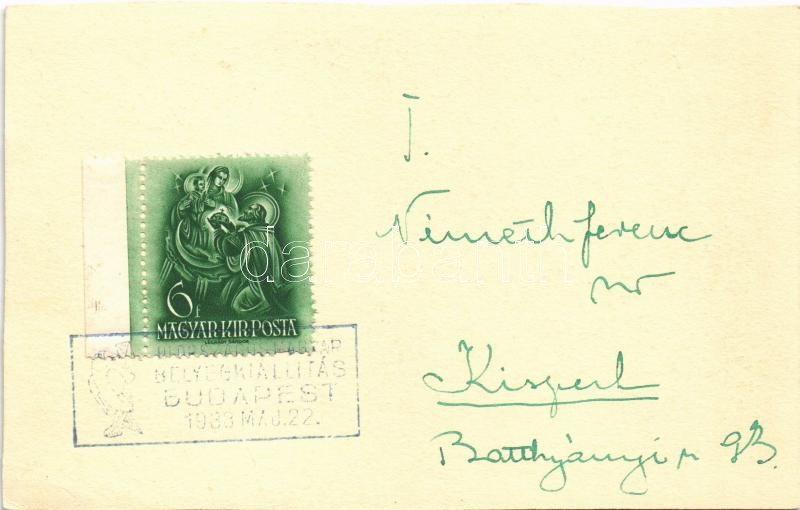 T.
Németh Ferenc
úr
Kispest
Batthyányi u 93.
6f
MAGYAR·KIR·POSTA
LEGRÁDY SÁNDOR
BÉLYEGKIÁLLÍTÁS
BUDAPEST
1938 MÁJ.22.
darabanth